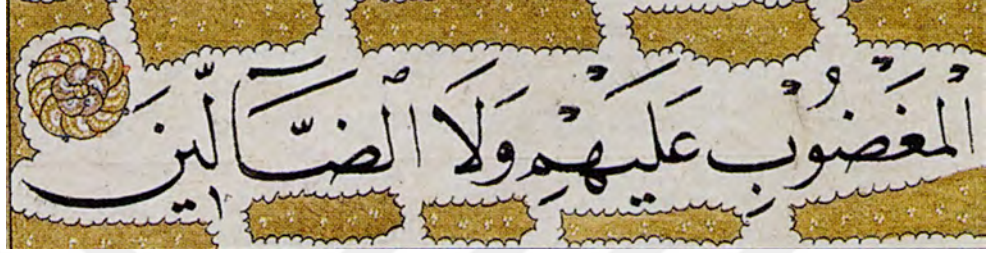 الْمَغْضُوبِ عَلَيْهِمْ وَلَا الضَّالِّينَ